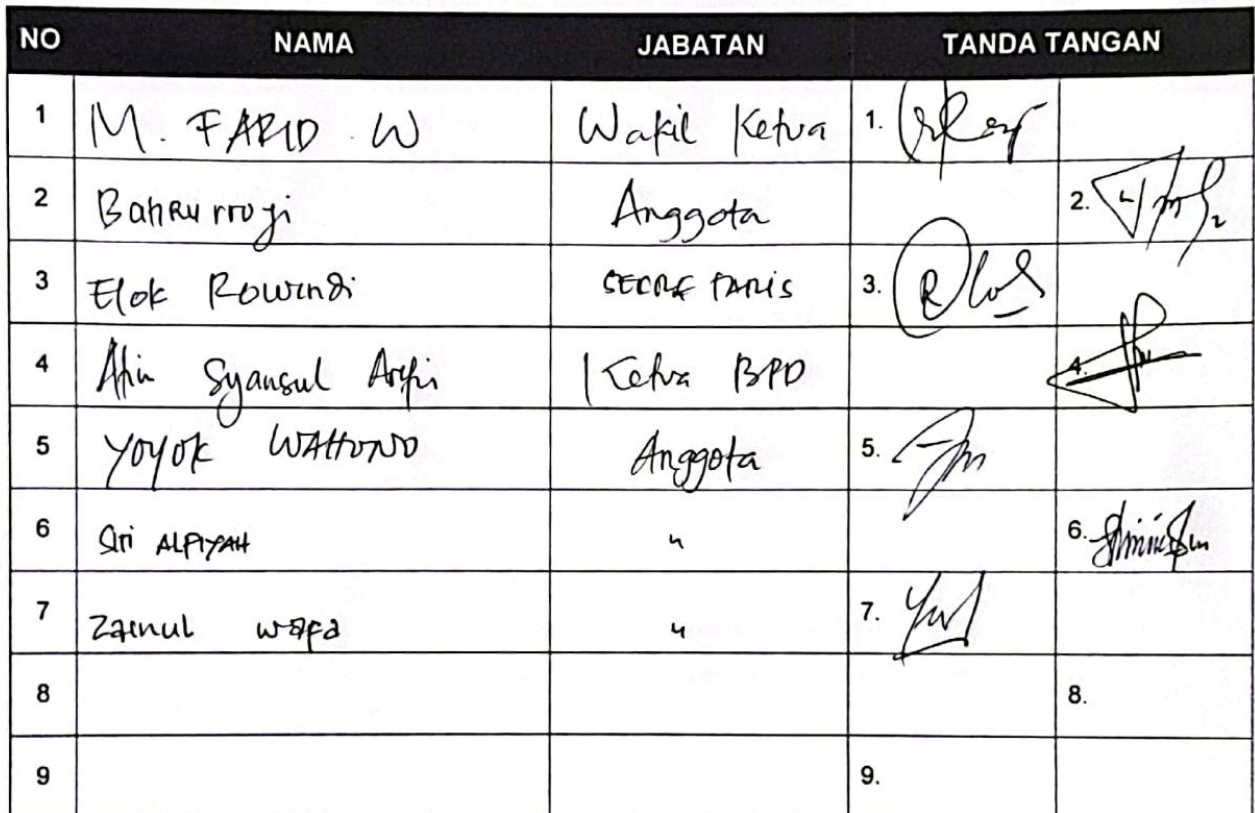 NO NAMA JABATAN TANDA TANGAN
1 M. FARID . W Wakil Ketua 1.
2 Bahrurroji Anggota 2.
3 Elok Rowindi SECRETARIS 3.
4 Syansul Arifin Ketua BPD 4.
5 Yoyok WAHONO Anggota 5.
6 Siti ALFIYAH " 6.
7 Zainul wafa " 7.
8 8.
9 9.